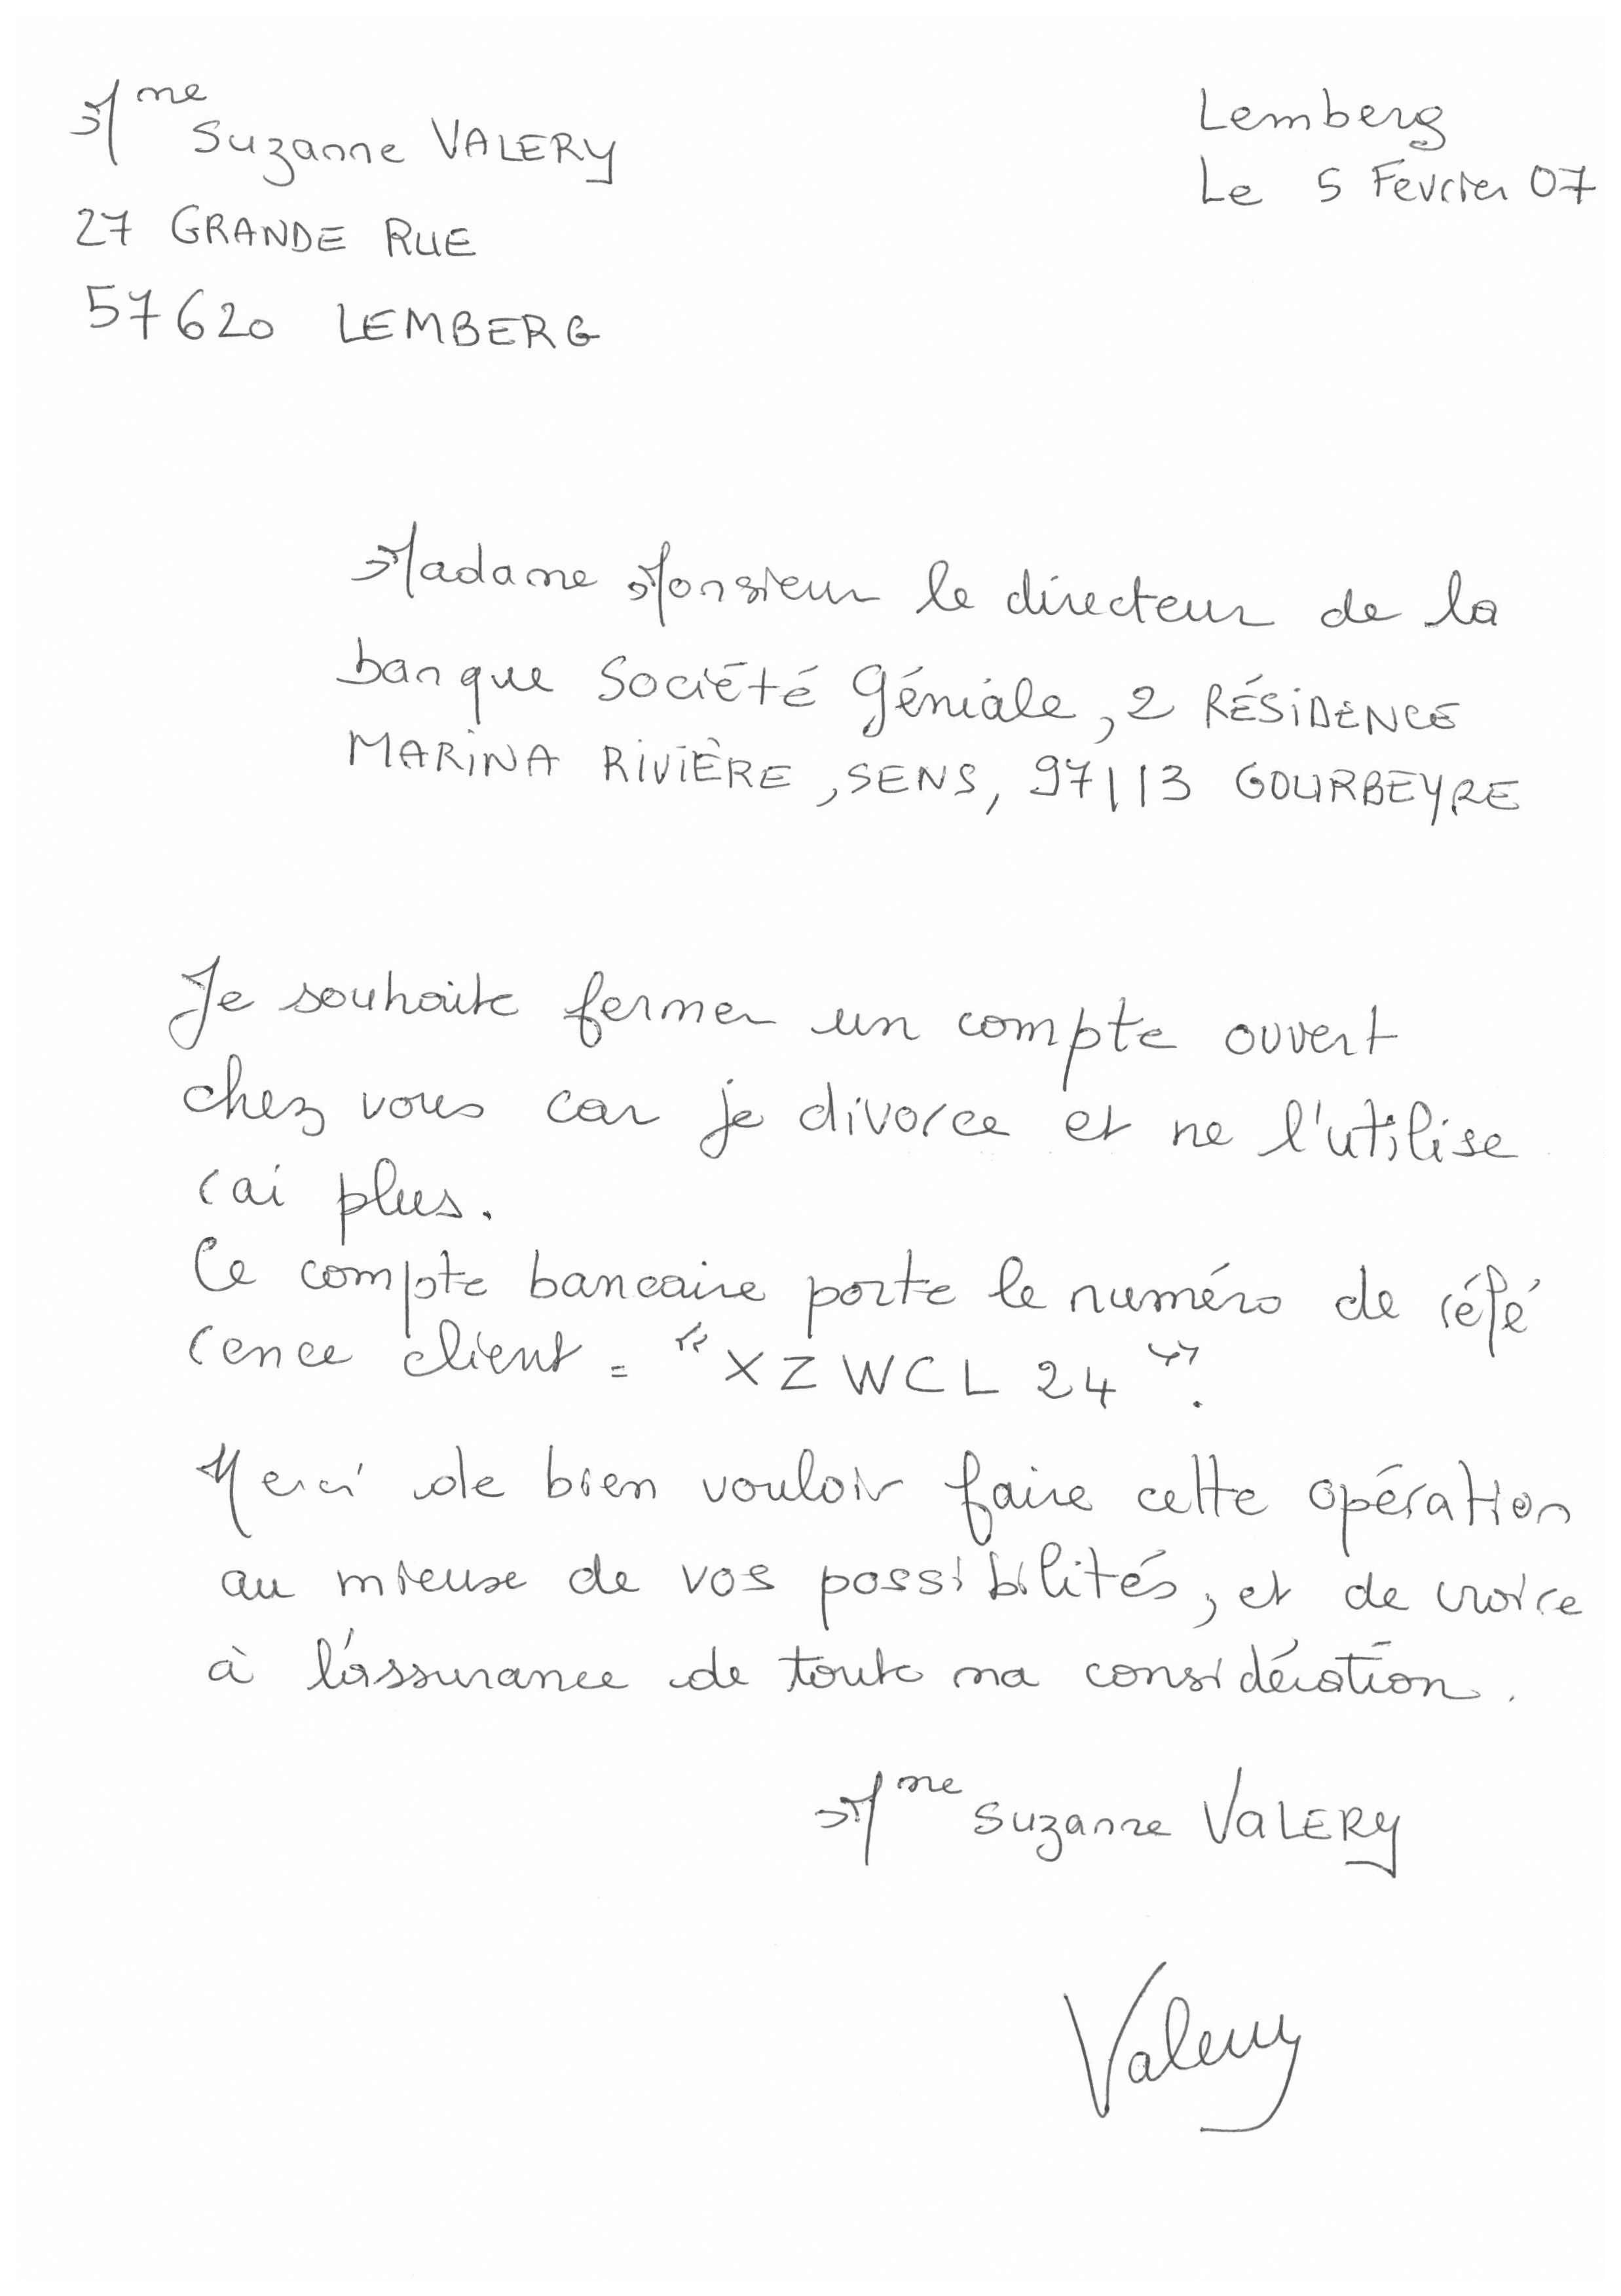 Mme Suzanne VALERY
27 GRANDE RUE
57620 LEMBERG
Lemberg
Le 5 Février 07
Madame Monsieur le directeur de la
banque Société Géniale, 2 RÉSIDENCE
MARINA RIVIÈRE, SENS, 97113 GOURBEYRE
Je souhaite fermer un compte ouvert
chez vous car je divorce et ne l'utilise
rai plus.
Ce compte bancaire porte le numéro de réfé
rence client = "XZWCL 24".
Merci de bien vouloir faire cette opération
au mieux de vos possibilités, et de croire
à l'assurance de toute ma considération.
Mme Suzanne VALERY
Valery